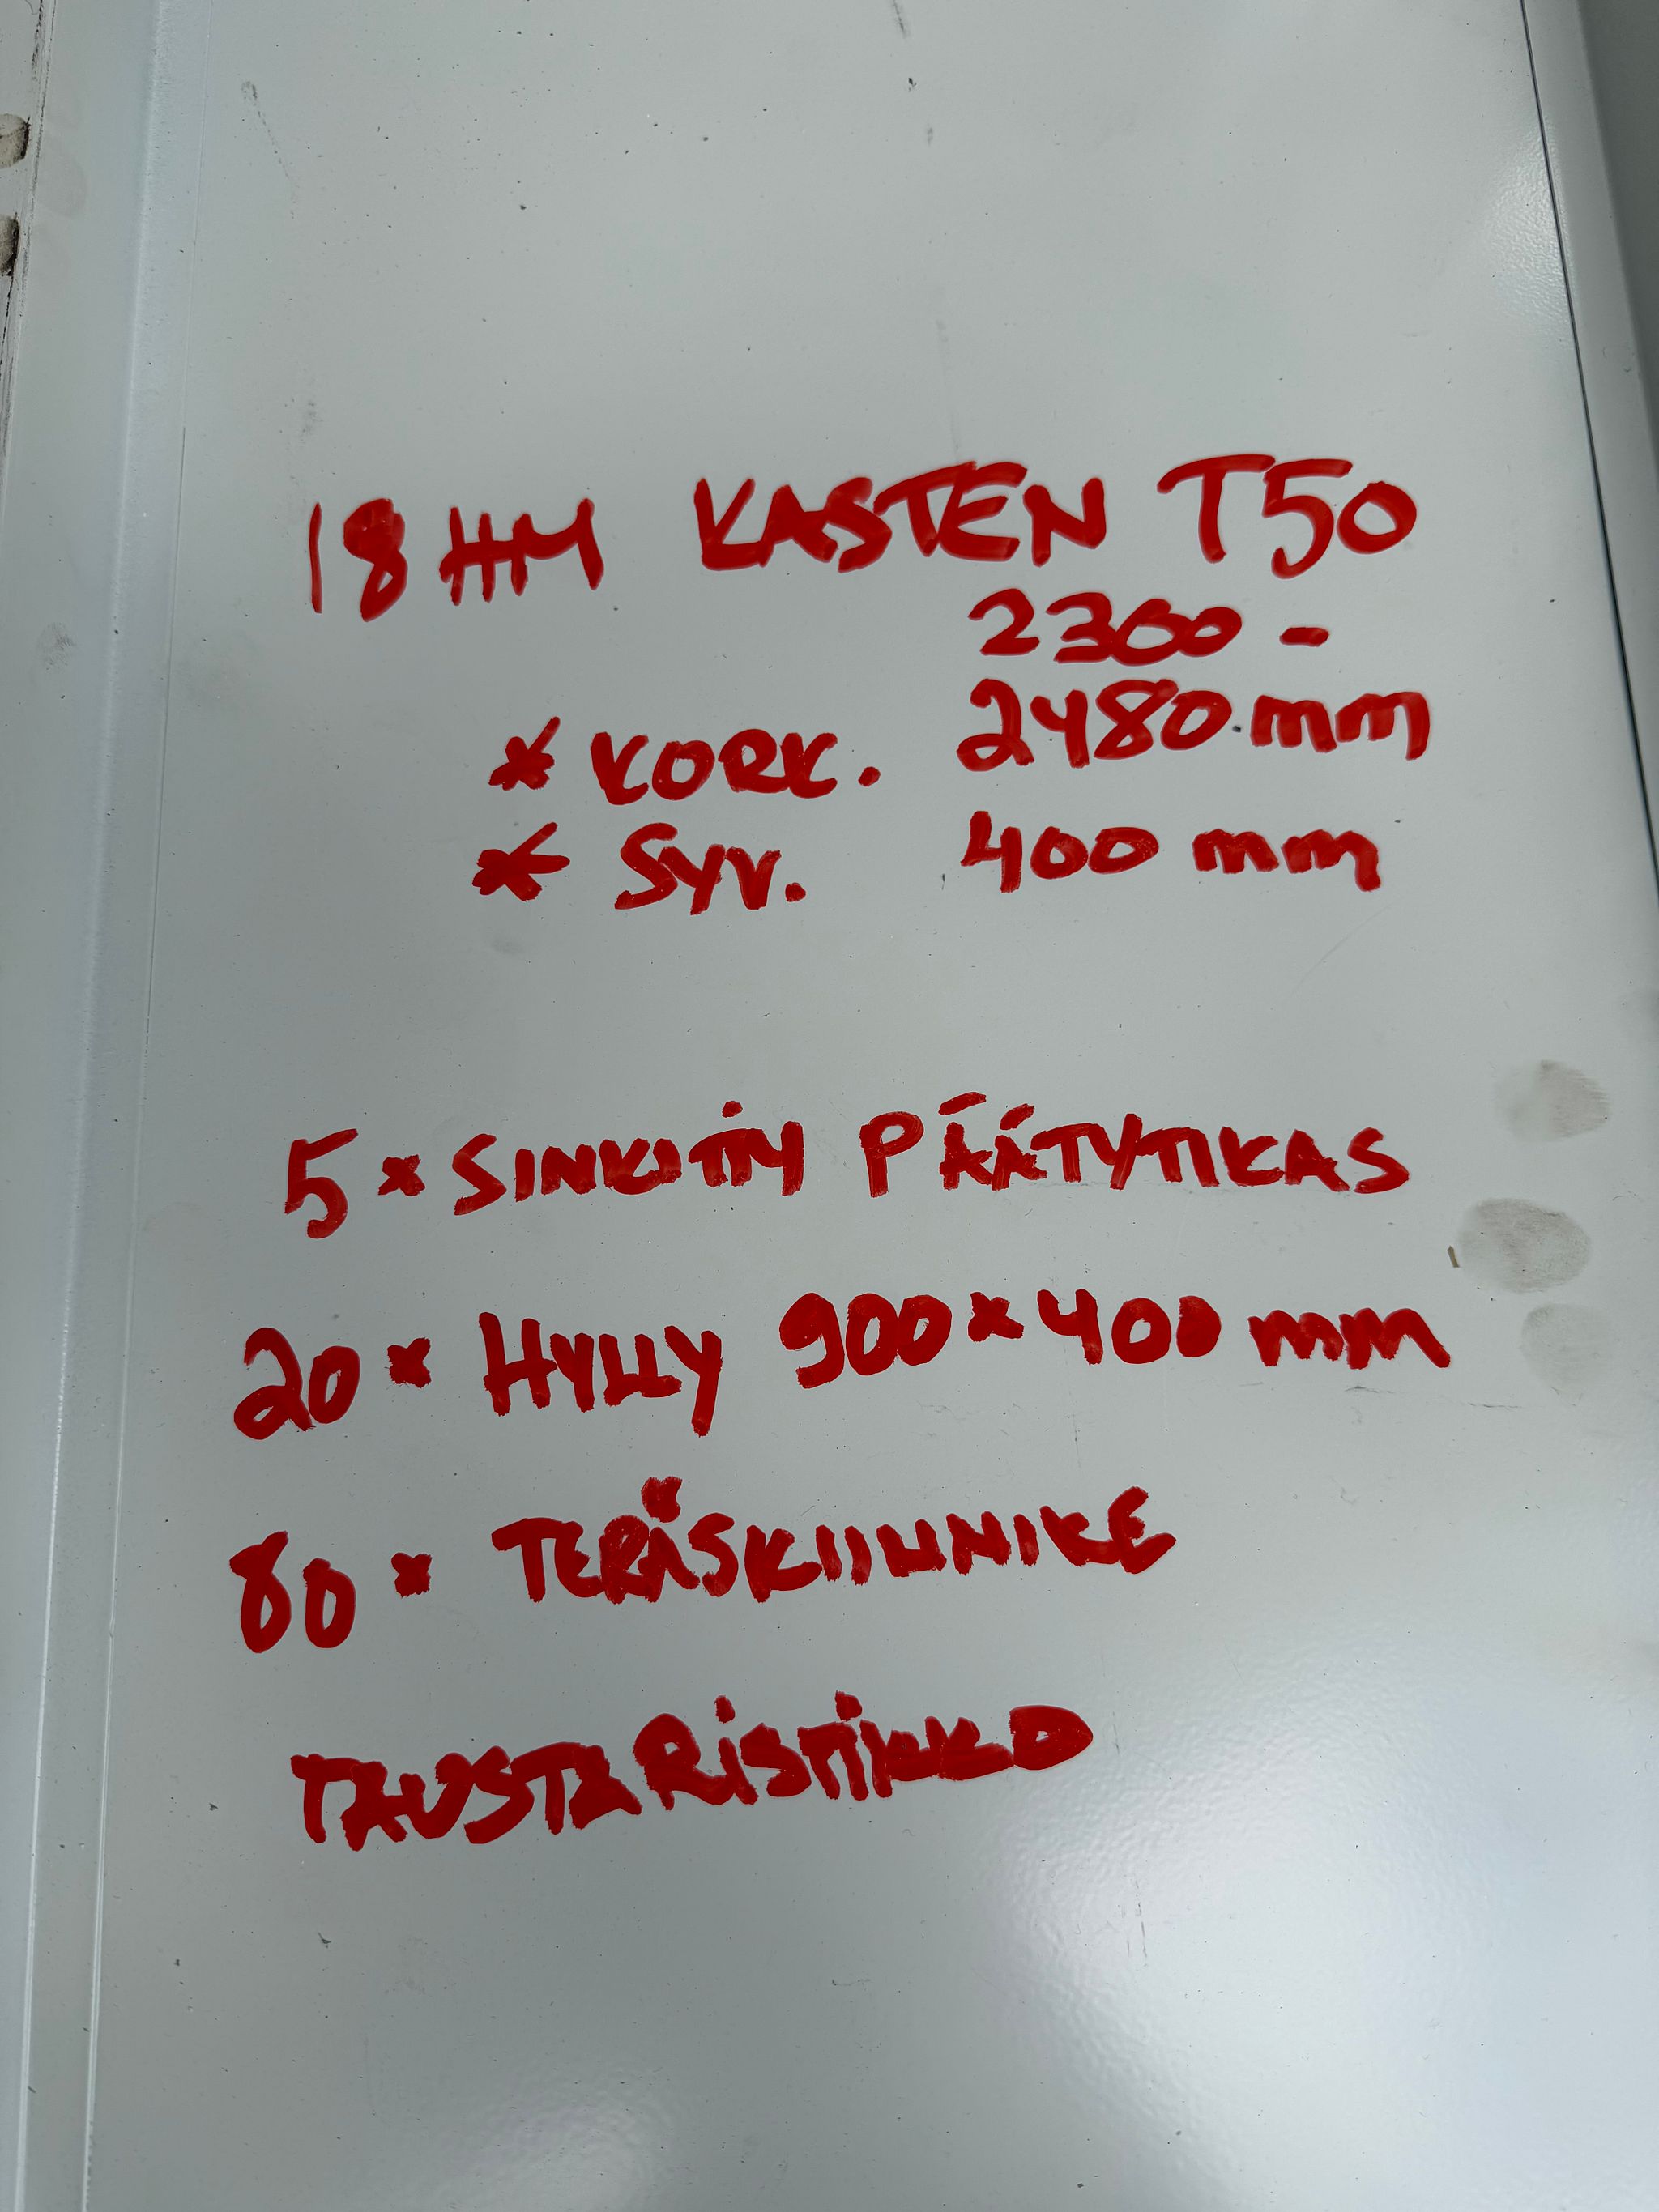 18 HM KASTEN T50
2300 -
* KORK. 2480 mm
* SYV. 400 mm
5 x SINKITTY PÄÄTYTIKAS
20 x HYLLY 900 x 400 mm
80 x TERÄSKIINNIKE
TAUSTARISTIKKO